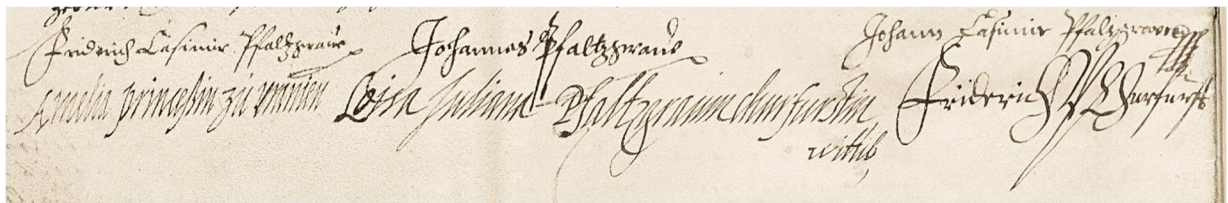 Friderich Casimir Pfaltzgrave Johannes Pfaltzgrave Johann Casimir Pfaltzgrave
Amelia princeßin zu uranien Loisa Juliana Pfaltzgravin churfurstin Friderich Churfurst
wittib